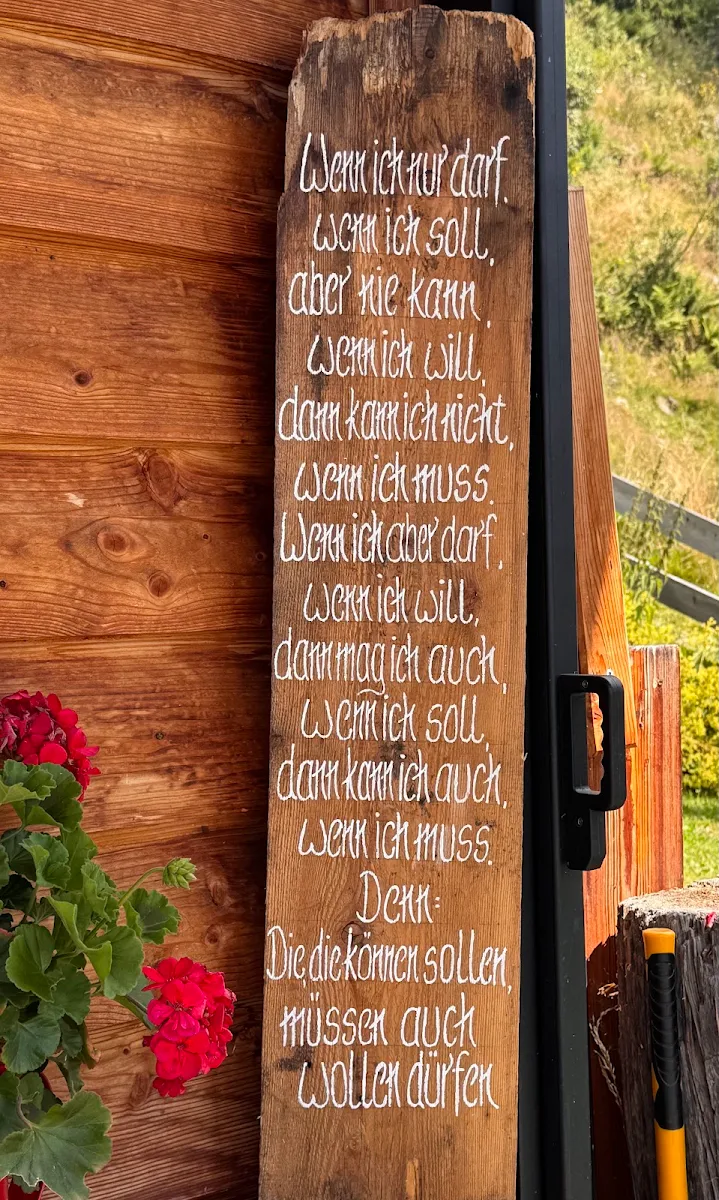 Wenn ich nur darf.
wenn ich soll,
aber nie kann,
wenn ich will,
dann kann ich nicht,
wenn ich muss.
Wenn ich aber darf,
wenn ich will,
dann mag ich auch,
wenn ich soll,
dann kann ich auch,
wenn ich muss.
Denn:
Die, die können sollen,
müssen auch
wollen dürfen